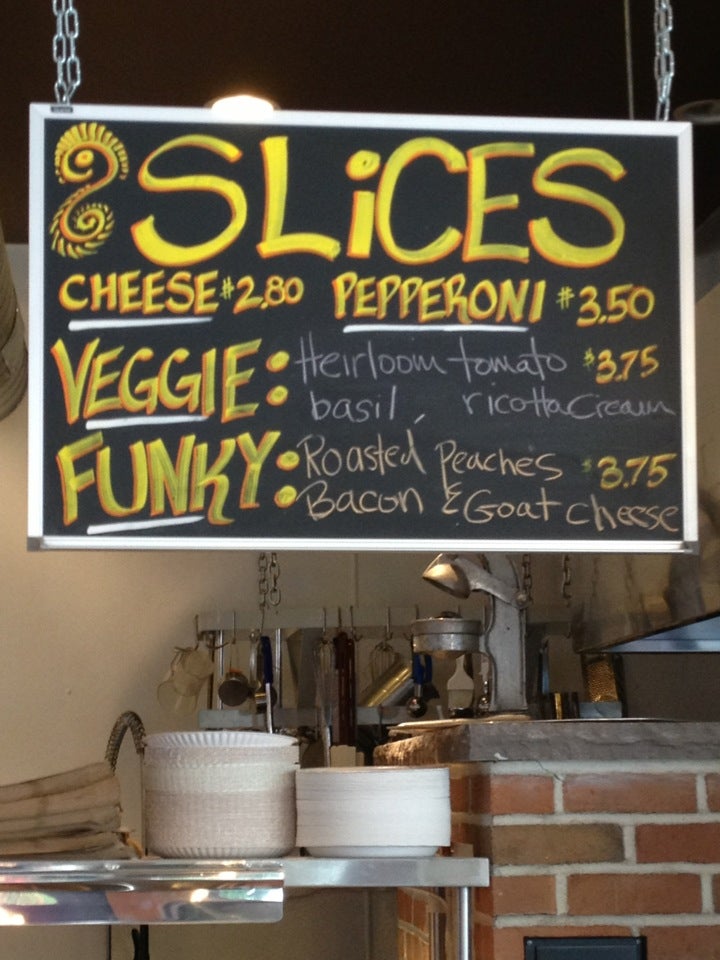 SLiCES
CHEESE $2.80 PEPPERONI $3.50
VEGGIE: Heirloom tomato $3.75
basil, ricotta Cream
FUNKY: Roasted Peaches $3.75
Bacon & Goat cheese